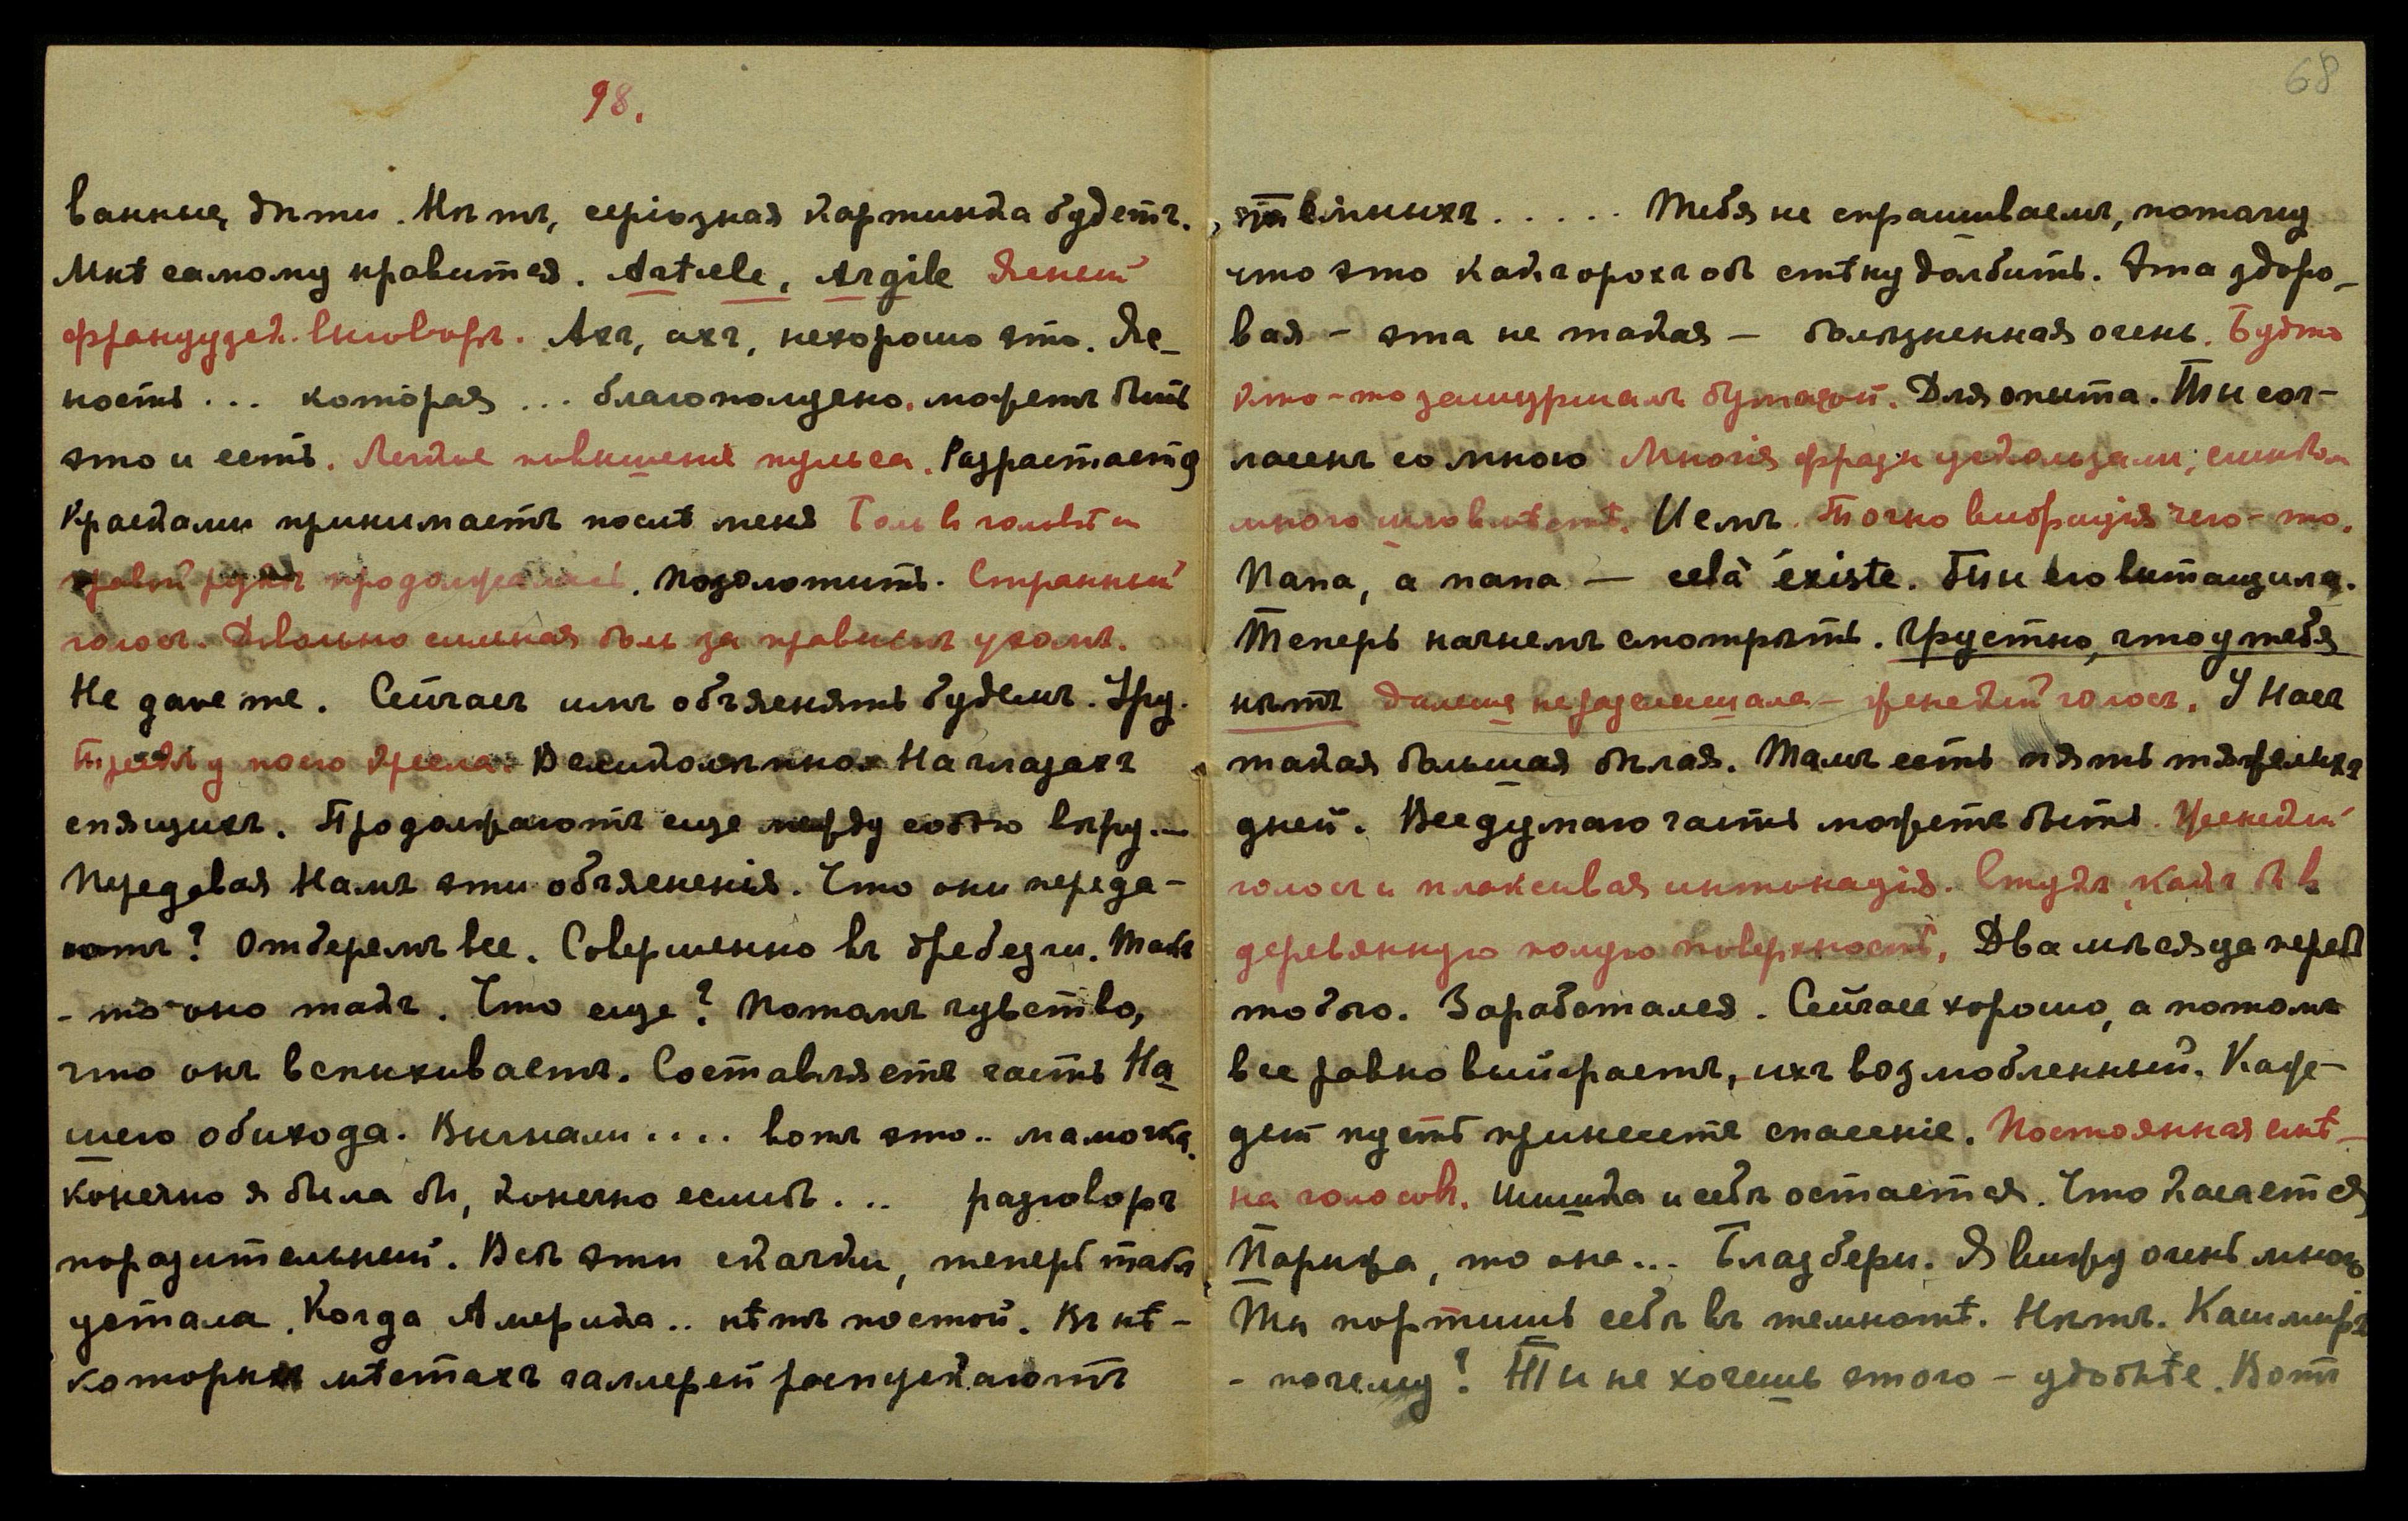 98.
ванные дѣти. Нѣтъ, серіозная картинка будетъ.
Мнѣ самому нравится. Article, Argile Ясный
французск. выговоръ. Ахъ, ахъ, нехорошо это. Яс-
ность ... которая ... благополучно, можетъ быть
это и есть. Легкое повышеніе пульса. Разрастается
Красками принимаетъ послѣ меня Боль въ головѣ и
правой рукѣ продолжалась. Позолотить. Странный
голосъ. Довольно сильная боль за правымъ ухомъ.
Не дане те. Сейчасъ имъ объяснять будемъ.
Трескъ у моего кресла. Великолѣпное На глазахъ
спящихъ. Продолжаютъ еще между собою вѣру.—
Передавая Намъ эти объясненія. Что они переда-
ютъ? Отберемъ все. Совершенно въ дребезги. Такъ
- то оно такъ. Что еще? Потомъ чувство,
что онъ вспыхиваетъ. Составляетъ часть На
шего обихода. Выгнали.... вотъ это.. мамочка.
Конечно я была бы, конечно еслибъ ... разговоръ
поразительный. Всѣ эти скачки, теперь такъ
устала. Когда Америка.. нѣтъ постой. Въ нѣ-
которыхъ мѣстахъ галлерей распускаютъ
68
..... Тебя не спрашиваемъ, потому
что это какъ горохъ объ стѣну долбить. Эта здоро-
вая - эта не такая - болѣзненная очень. Будто
кто-то зашуршалъ бумагой. Для опыта. Ты сог-
ласенъ со мною Многія фразы ускользали, слишком
много шло вмѣстѣ. Исмъ. Точно вибрація чего-то.
Папа, а папа — celà éxiste. Ты его вытащила.
Теперь начнемъ смотрѣть. Грустно, что у тебя
нѣтъ дальше не разслышала - женскій голосъ. У Насъ
такая большая бѣлая. Тамъ есть пять тяжелыхъ
дней. Все думаю часть можетъ быть. Женскій
голосъ и плаксивая интонація. Стукъ какъ бы въ
деревянную полую поверхность. Два мѣсяца передъ
тобою. Заработался. Сейчасъ хорошо, а потомъ
все равно выиграетъ, ихъ возлюбленный. Каж-
дый пусть принесетъ спасеніе. Постоянная смѣ-
на голосовъ. Шишка и себѣ остается. Что касается
Парижа, то она... Бладбери. Я вижу очень много
Ты портишь себѣ въ темнотѣ. Нѣтъ. Кашмиръ
- почему? Ты не хочешь этого - удобнѣе. Вотъ